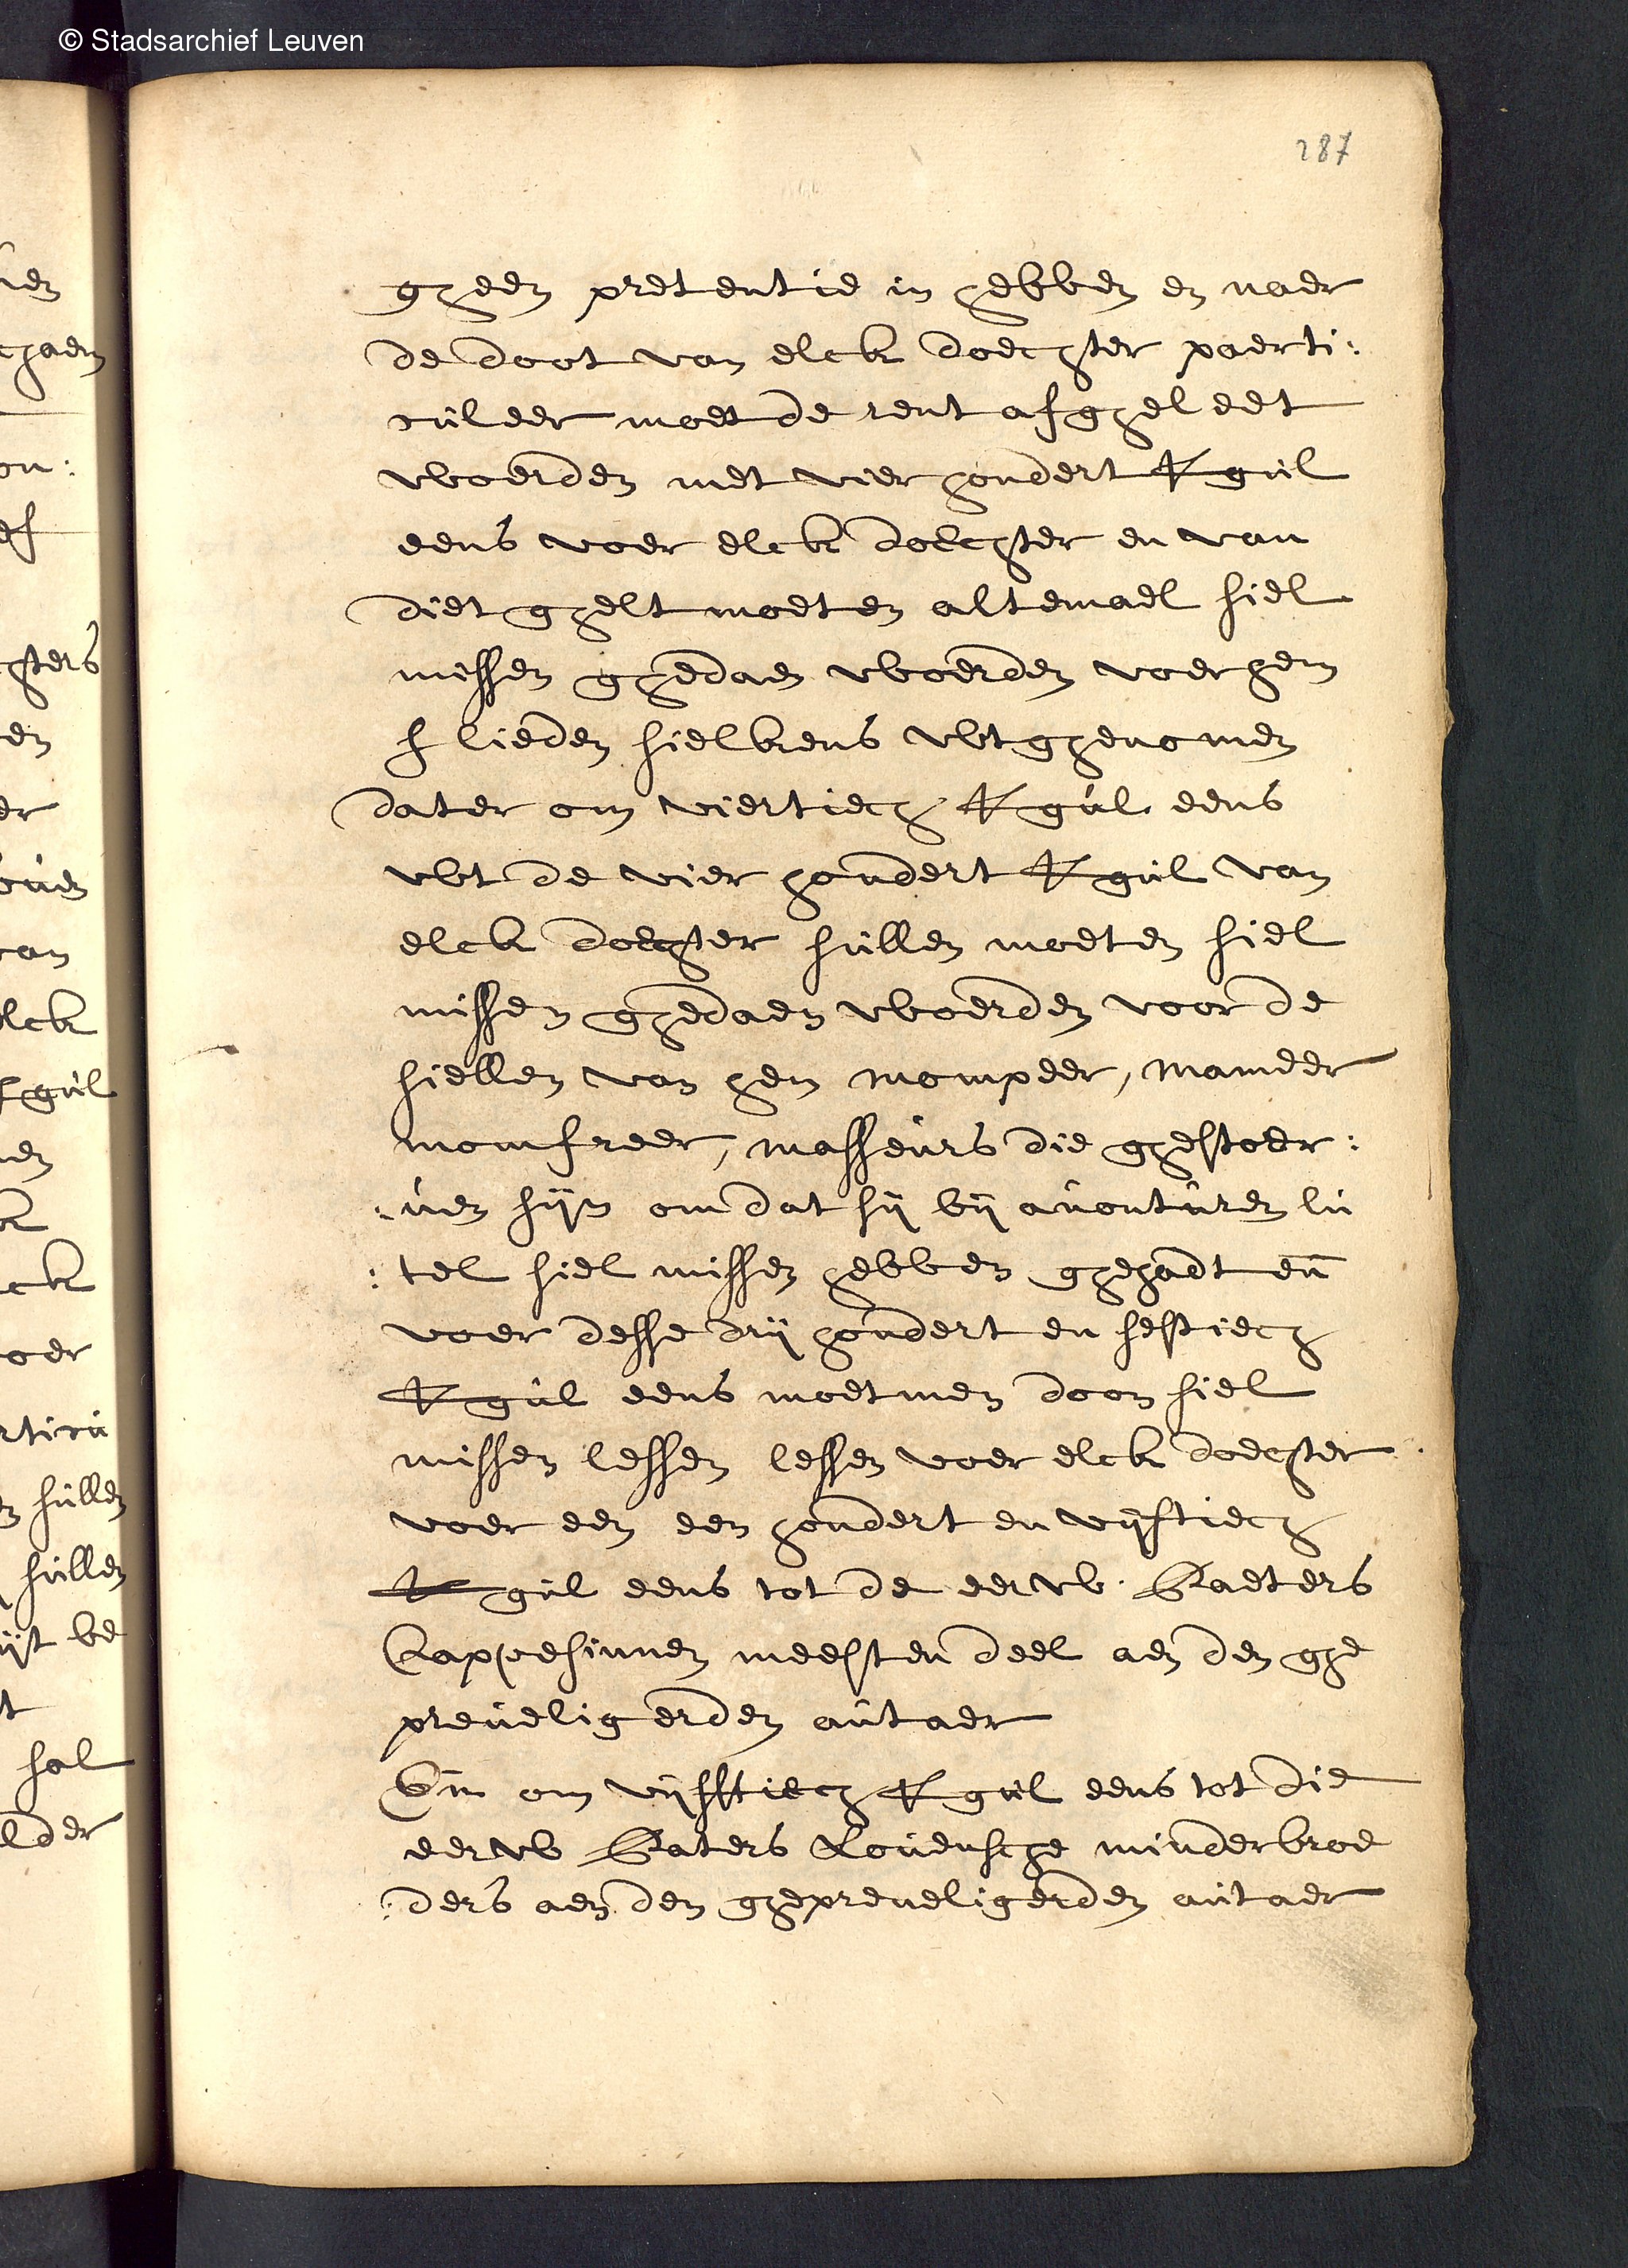 © Stadsarchief Leuven
287
gheen pretentie in hebben en naer
de doot van elck doechter paerti:
culeer moet de rent afgheleet
woerden met vier hondert K gul
eens voer elck doechter en van
diet ghelt moeten altemael siel
missen ghedaen woerden voer hem
s lieden sielkens wt ghenomen
dater om viertiech K gul eens
wt de vier hondert K gul van
elck doechter sullen moeten siel
missen ghedaen woerden voor de
siellen van hem mompeer, mameer
momfreer, masseurs die ghestoer:
:uen sijn om dat sij bij auonturen lu
:tel siel missen hebben ghehadt en
voer desse drij hondert en sestiech
K gul eens moetmen doon siel
missen lessen lessen voer elck doechter
voer een een hondert en vijftiech
K gul eens tot de eerw. Paeters
Cappesinnen meesten deel aen den ghe
preueligerden autaer
En om vijfftiech K gul eens tot die
eerw Paters Louensche minderbroe
:ders aen den ghepreueligerden autaer